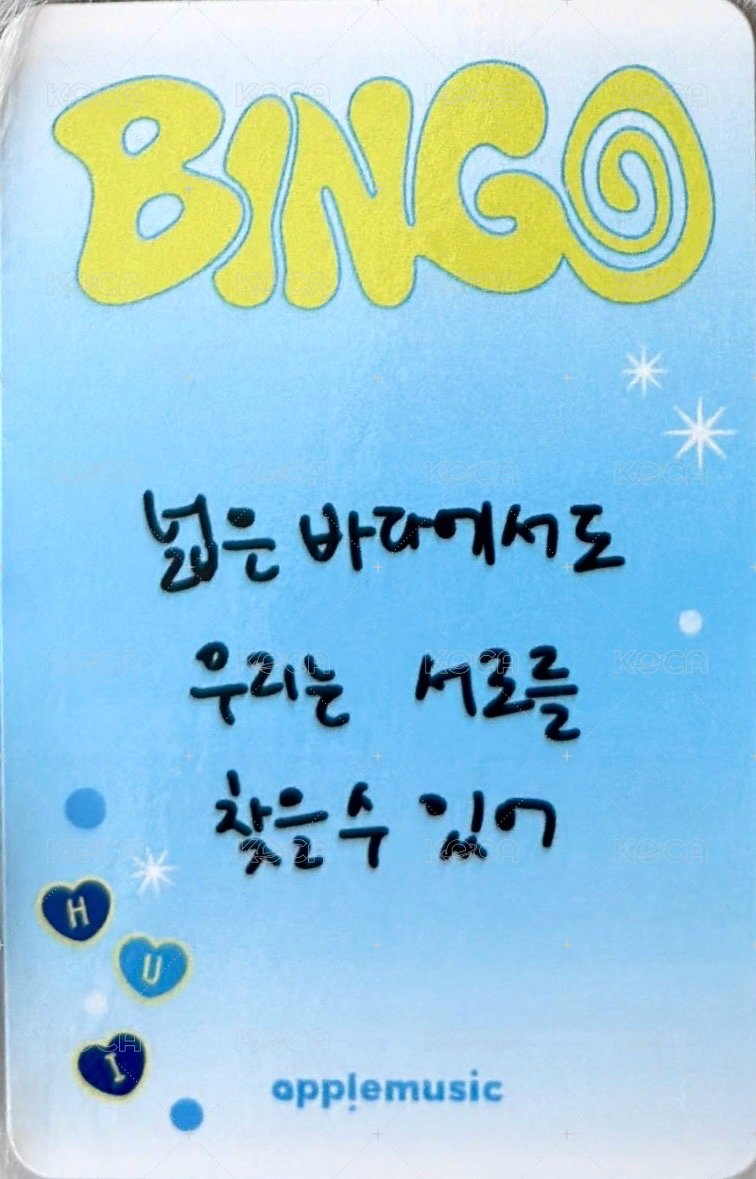 BINGO
넓은 바다에서도
우리는 서로를
찾을 수 있어
H
U
I
applemusic
KOCA